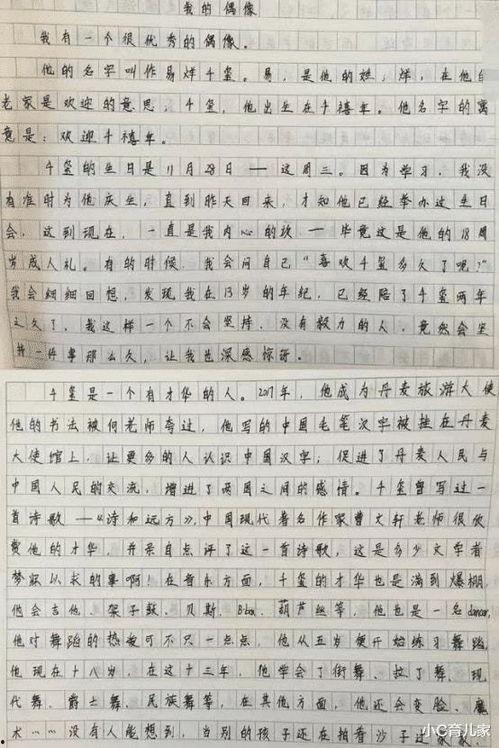 我的偶像
我有一个很优秀的偶像。
他的名字叫作易烊千玺。易，是他的姓，烊，在他
老家是欢迎的意思，千玺，他出生在千禧年。他名字的寓
意是：欢迎千禧年。
千玺的生日是11月28日——这周三。因为学习，我没
有准时为他庆生，直到昨天回来，才知他已经举办过生日
会，这到现在，一直是我内心的坎——毕竟这是他的18周
岁成人礼。有的时候，我会问自己“喜欢千玺多久了呢？”
我会细细回想，发现我在13岁的年纪，已经陪了千玺两年
之久了，我这样一个不会坚持、没有毅力的人，竟然会坚
持一件事那么久，让我也深感惊讶。
千玺是一个有才华的人。2017年，他成为丹麦旅游大使
他的书法被何老师夸过，他写的中国毛笔汉字被挂在丹麦
大使馆上，让更多的人认识中国汉字，促进了丹麦人民与
中国人民的交流，增进了两国之间的感情。千玺曾写过一
首诗歌——《诗和远方》，中国现代著名作家曹文轩老师很欣
赏他的才华，并亲自点评了这一首诗歌，这是多少文学者
梦寐以求的事啊！在音乐方面，千玺的才华也是满到爆棚，
他会吉他、架子鼓、贝斯、B-box、葫芦丝等，他也是一名dancer，
他对舞蹈的热爱可不只一点点，他从五岁便开始练习舞蹈，
他现在十八岁，在这十三年，他学会了街舞、拉丁舞、现
代舞、爵士舞、民族舞等，在其他方面，他还会变脸、魔
术……没有人能想到，当别的孩子还在拍着沙子过家家
小C育儿家